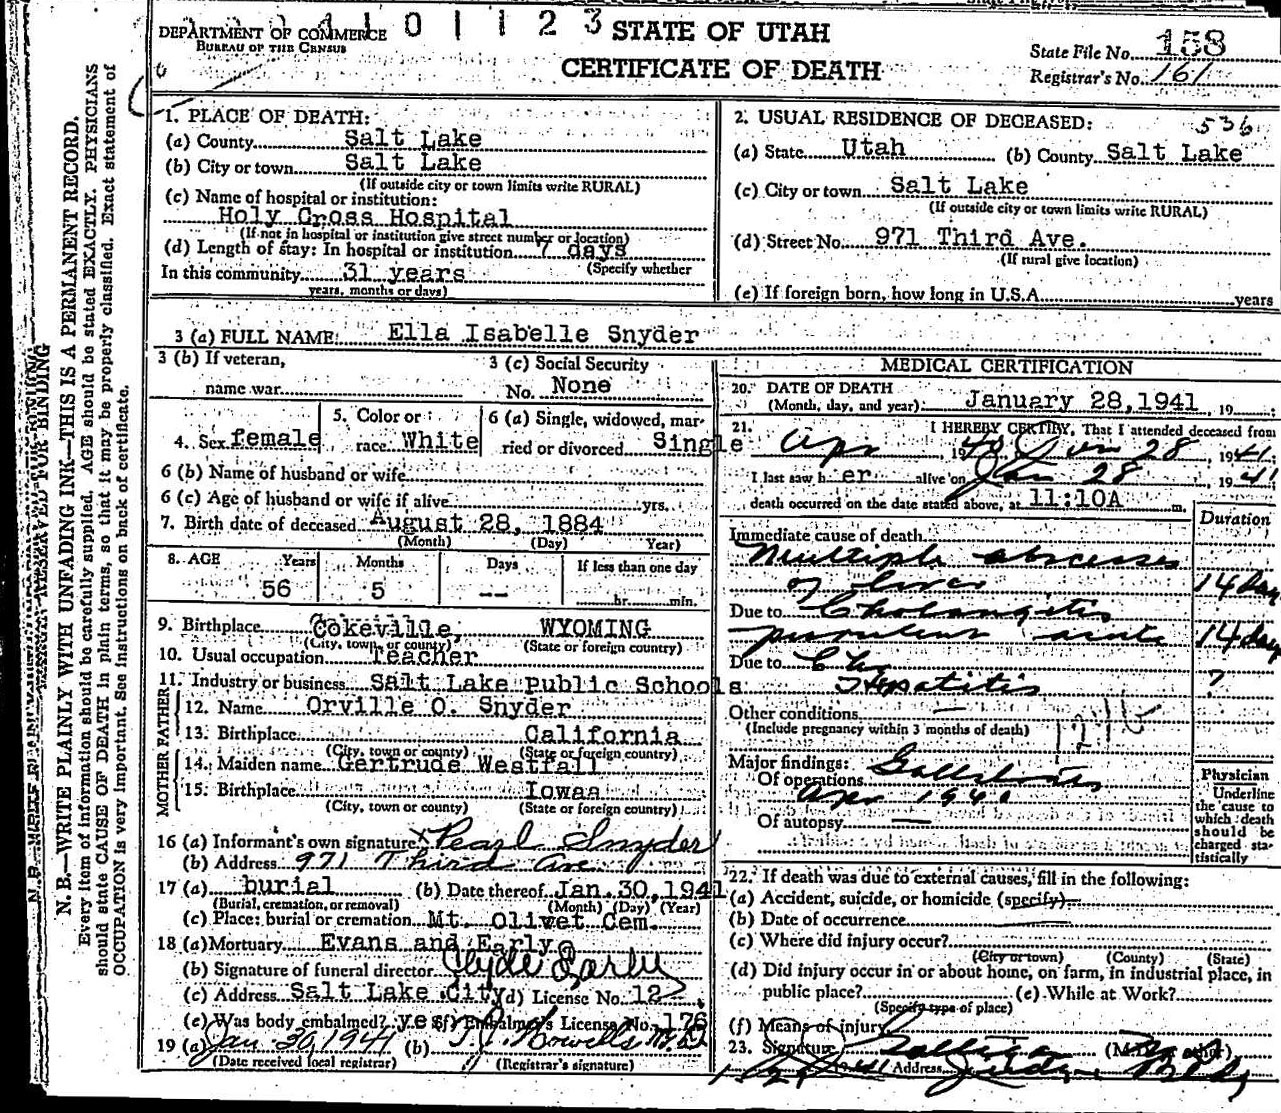 DEPARTMENT OF COMMERCE
BUREAU OF THE CENSUS
0 1 1 2 3
STATE OF UTAH
CERTIFICATE OF DEATH
State File No. 158
Registrar's No. 161
N. B.—WRITE PLAINLY WITH UNFADING INK—THIS IS A PERMANENT RECORD.
Every item of information should be carefully supplied. AGE should be stated EXACTLY. PHYSICIANS
should state CAUSE OF DEATH in plain terms, so that it may be properly classified. Exact statement of
OCCUPATION is very important. See instructions on back of certificate.
RESERVED FOR BINDING
1. PLACE OF DEATH:
(a) County Salt Lake
(b) City or town Salt Lake
(If outside city or town limits write RURAL)
(c) Name of hospital or institution:
Holy Cross Hospital
(If not in hospital or institution give street number or location)
(d) Length of stay: In hospital or institution 7 days
(Specify whether
In this community 31 years
years, months or days)
2. USUAL RESIDENCE OF DECEASED: 536
(a) State Utah (b) County Salt Lake
(c) City or town Salt Lake
(If outside city or town limits write RURAL)
(d) Street No. 971 Third Ave.
(If rural give location)
(e) If foreign born, how long in U.S.A. years
3 (a) FULL NAME: Ella Isabelle Snyder
3 (b) If veteran,
name war
3 (c) Social Security
No. None
4. Sex female
5. Color or
race White
6 (a) Single, widowed, mar-
ried or divorced Single
6 (b) Name of husband or wife
6 (c) Age of husband or wife if alive yrs.
7. Birth date of deceased August 28, 1884
(Month) (Day) Year)
8. AGE Years Months Days If less than one day
56 5 -- hr. min.
9. Birthplace Cokeville, WYOMING
(City, town, or county) (State or foreign country)
10. Usual occupation Teacher
11. Industry or business Salt Lake Public Schools
FATHER
12. Name Orville O. Snyder
13. Birthplace California
(City, town or county) (State or foreign country)
MOTHER
14. Maiden name Gertrude Westfall
15. Birthplace Iowaa
(City, town or county) (State or foreign country)
16 (a) Informant's own signature x Pearl Snyder
(b) Address 971 Third Ave
17 (a) burial (b) Date thereof Jan. 30, 1941
(Burial, cremation, or removal) (Month) (Day) (Year)
(c) Place: burial or cremation Mt. Olivet Cem.
18 (a) Mortuary Evans and Early
(b) Signature of funeral director Clyde Early
(c) Address Salt Lake City (d) License No. 12
(e) Was body embalmed? yes (f) Embalmer's License No. 176
19 (a) Jan 30, 1941 (b) T. J. Howells M.D.
(Date received local registrar) (Registrar's signature)
MEDICAL CERTIFICATION
20. DATE OF DEATH
(Month, day, and year): January 28, 1941, 19
21. I HEREBY CERTIFY, That I attended deceased from
Apr, 1940 Jan 28, 1941
I last saw her alive on Jan 28, 1941
death occurred on the date stated above, at 11:10A m.
Duration
Immediate cause of death
Multiple abscesses
of liver 14 days
Due to Cholangitis
purulent acute 14 days
Due to Chr
Hepatitis ?
Other conditions —
(Include pregnancy within 3 months of death)
Major findings:
Of operations Gallstones
Apr 1940
Of autopsy —
Physician
Underline
the cause to
which death
should be
charged sta-
tistically
22. If death was due to external causes, fill in the following:
(a) Accident, suicide, or homicide (specify)
(b) Date of occurrence
(c) Where did injury occur?
(City or town) (County) (State)
(d) Did injury occur in or about home, on farm, in industrial place, in
public place? (e) While at Work?
(Specify type of place)
(f) Means of injury
23. Signature (M.D. or other)
41 Address Judge Bldg